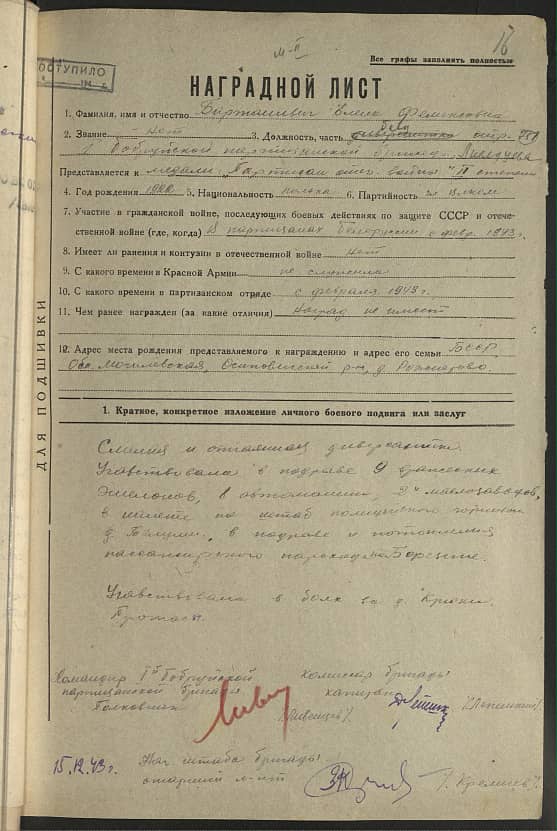 16
м-п
Все графы заполнять полностью
ПОСТУПИЛО
НАГРАДНОЙ ЛИСТ
1. Фамилия, имя и отчество Елена Феликсовна
2. Звание нет 3. Должность, часть диверсантка отр. 751
1 Бобруйской партизанской бригады Ливенцева
Представляется к медали "Партизан отеч. войны" II степени
4. Год рождения 5. Национальность полька 6. Партийность
7. Участие в гражданской войне, последующих боевых действиях по защите СССР и отече-
ственной войне (где, когда) В партизанах Белоруссии с февр. 1943 г.
8. Имеет ли ранения и контузии в отечественной войне нет
9. С какого времени в Красной Армии не служила
10. С какого времени в партизанском отряде с февраля 1943 г.
11. Чем ранее награжден (за какие отличия) наград не имеет
12. Адрес места рождения представляемого к награждению и адрес его семьи БССР
Обл. Могилевская, Осиповичский р-н, д.
ДЛЯ ПОДШИВКИ
1. Краткое, конкретное изложение личного боевого подвига или заслуг
Смелая и отчаянная диверсантка.
Участвовала в подрыве 9 вражеских
эшелонов, 2х маслозаводов,
в налете на штаб полицейского гарнизона
д. в подрыве и потоплении
пассажирского парохода на Березине.
Участвовала в боях за д. Крюки
Командир 1й Бобруйской
партизанской бригады
Полковник /Ливенцев/
комиссар бригады
капитан /Лепешкин/
15.12.43 г.
Нач штаба бригады
старший л-нт